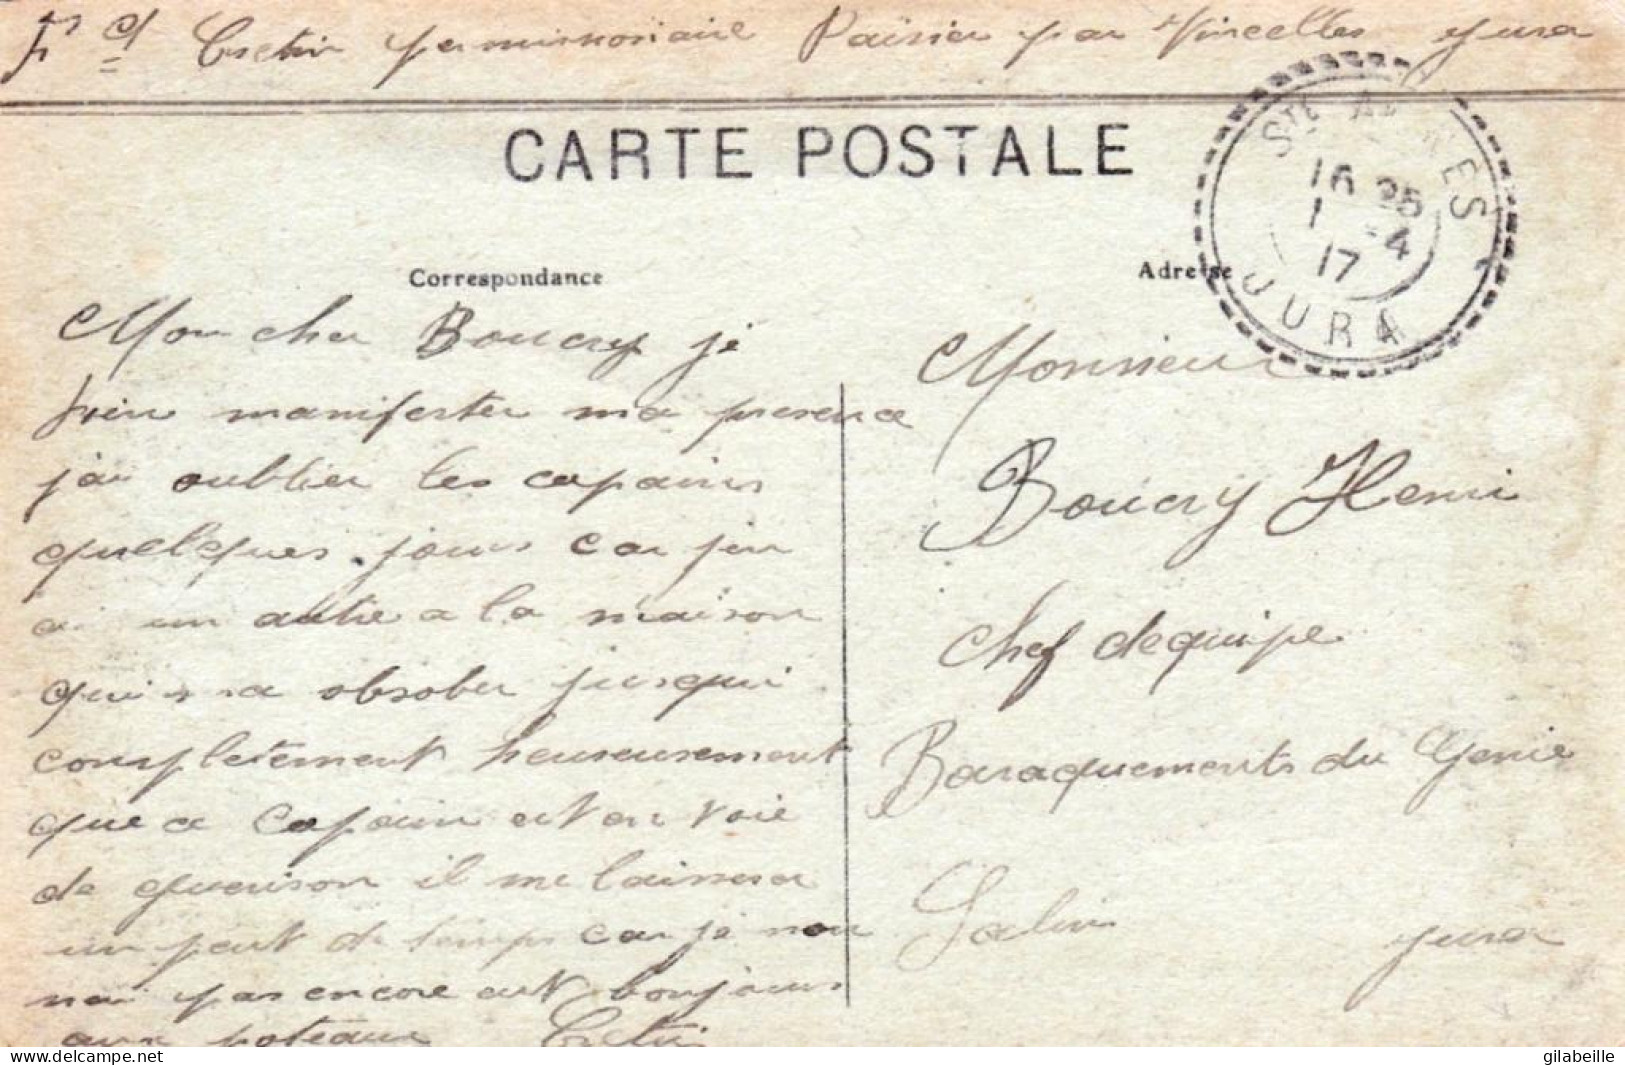 Fr d permissionaire Paisia par Vincelles Jura
CARTE POSTALE
Ste AGNES
16 25
1 -4
17
JURA
Correspondance
Adresse
Mon cher Boucry je
vien manifester ma presence
jai oublier les copains
quelques jours car jen
ai un autre a la maison
qui ma obsober jusqui
completement heureusement
que ce copain est en voie
de guerison il me laissera
un peut de temps car je non
nai pas encore eut bonjours
aux poteaux
Monsieur
Boucry Henri
Chef dequipe
Baraquements du Genie
Salins Jura
www.delcampe.net
gilabeille